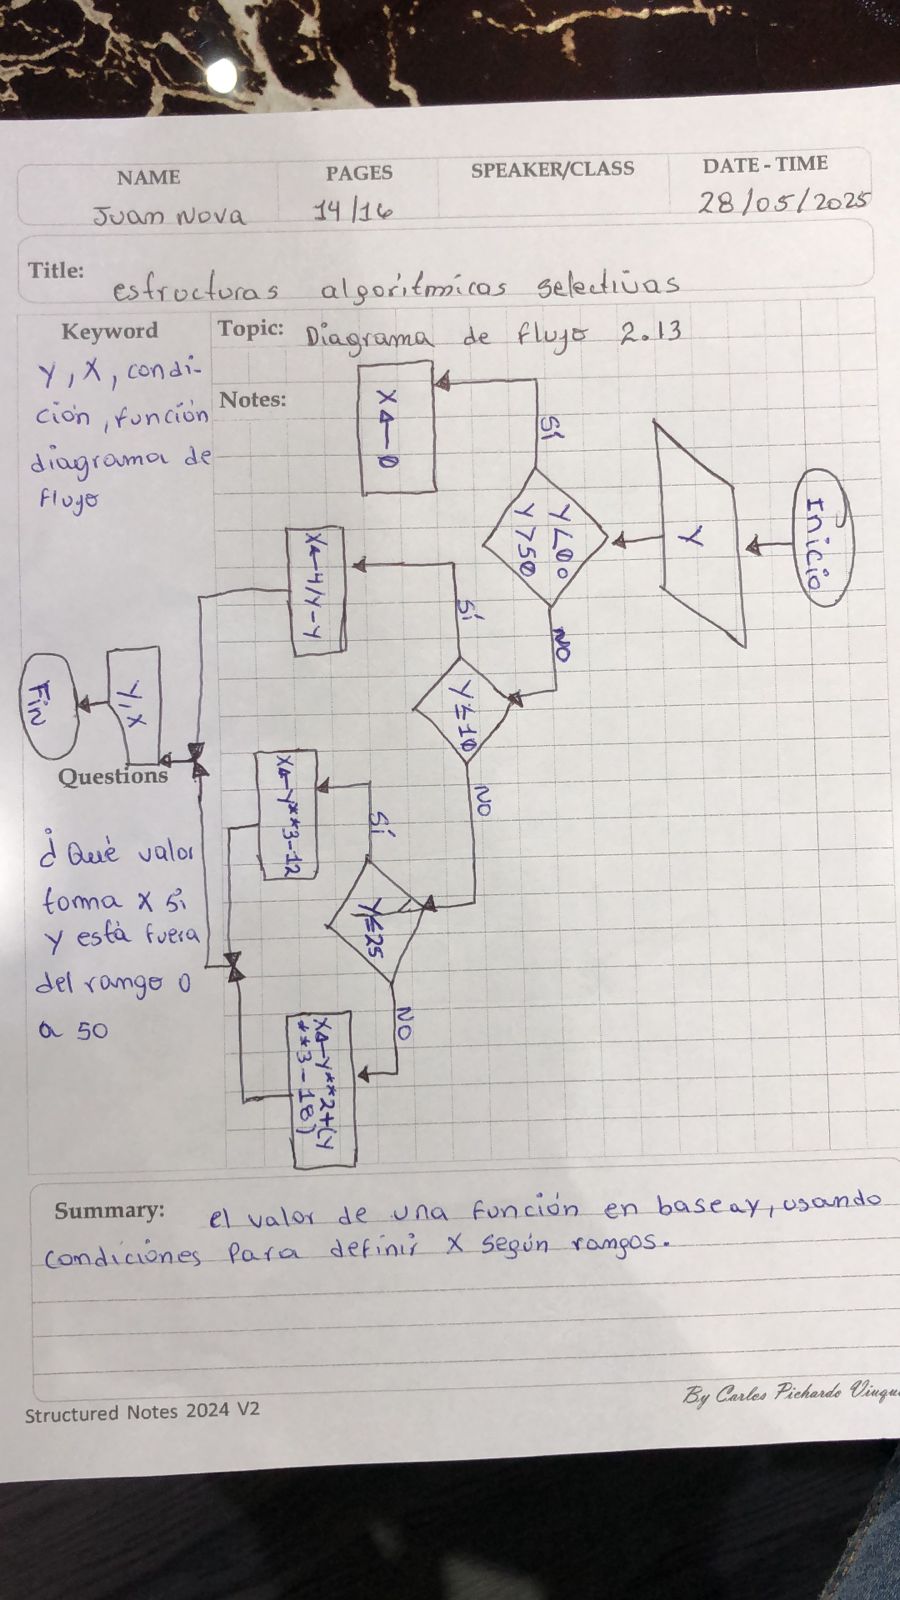 NAME PAGES SPEAKER/CLASS DATE - TIME
Juan Nova 14/16 28/05/2025
Title: estructuras algoritmicas selectivas
Keyword
Y, X, condi-
ción, función
diagrama de
flujo
Topic: Diagrama de flujo 2.13
Notes:
Inicio
Y
Y<00
Y>50
Sí
X←0
NO
Y≤10
Sí
X←4/Y-Y
NO
Y≤25
Sí
X←Y**3-12
NO
X←Y**2+(Y
**3-18)
Y, X
Fin
Questions
¿Qué valor
toma X si
Y está fuera
del rango 0
a 50
Summary: el valor de una función en base a y, usando
condiciónes para definir X según rangos.
Structured Notes 2024 V2
By Carlos Pichardo